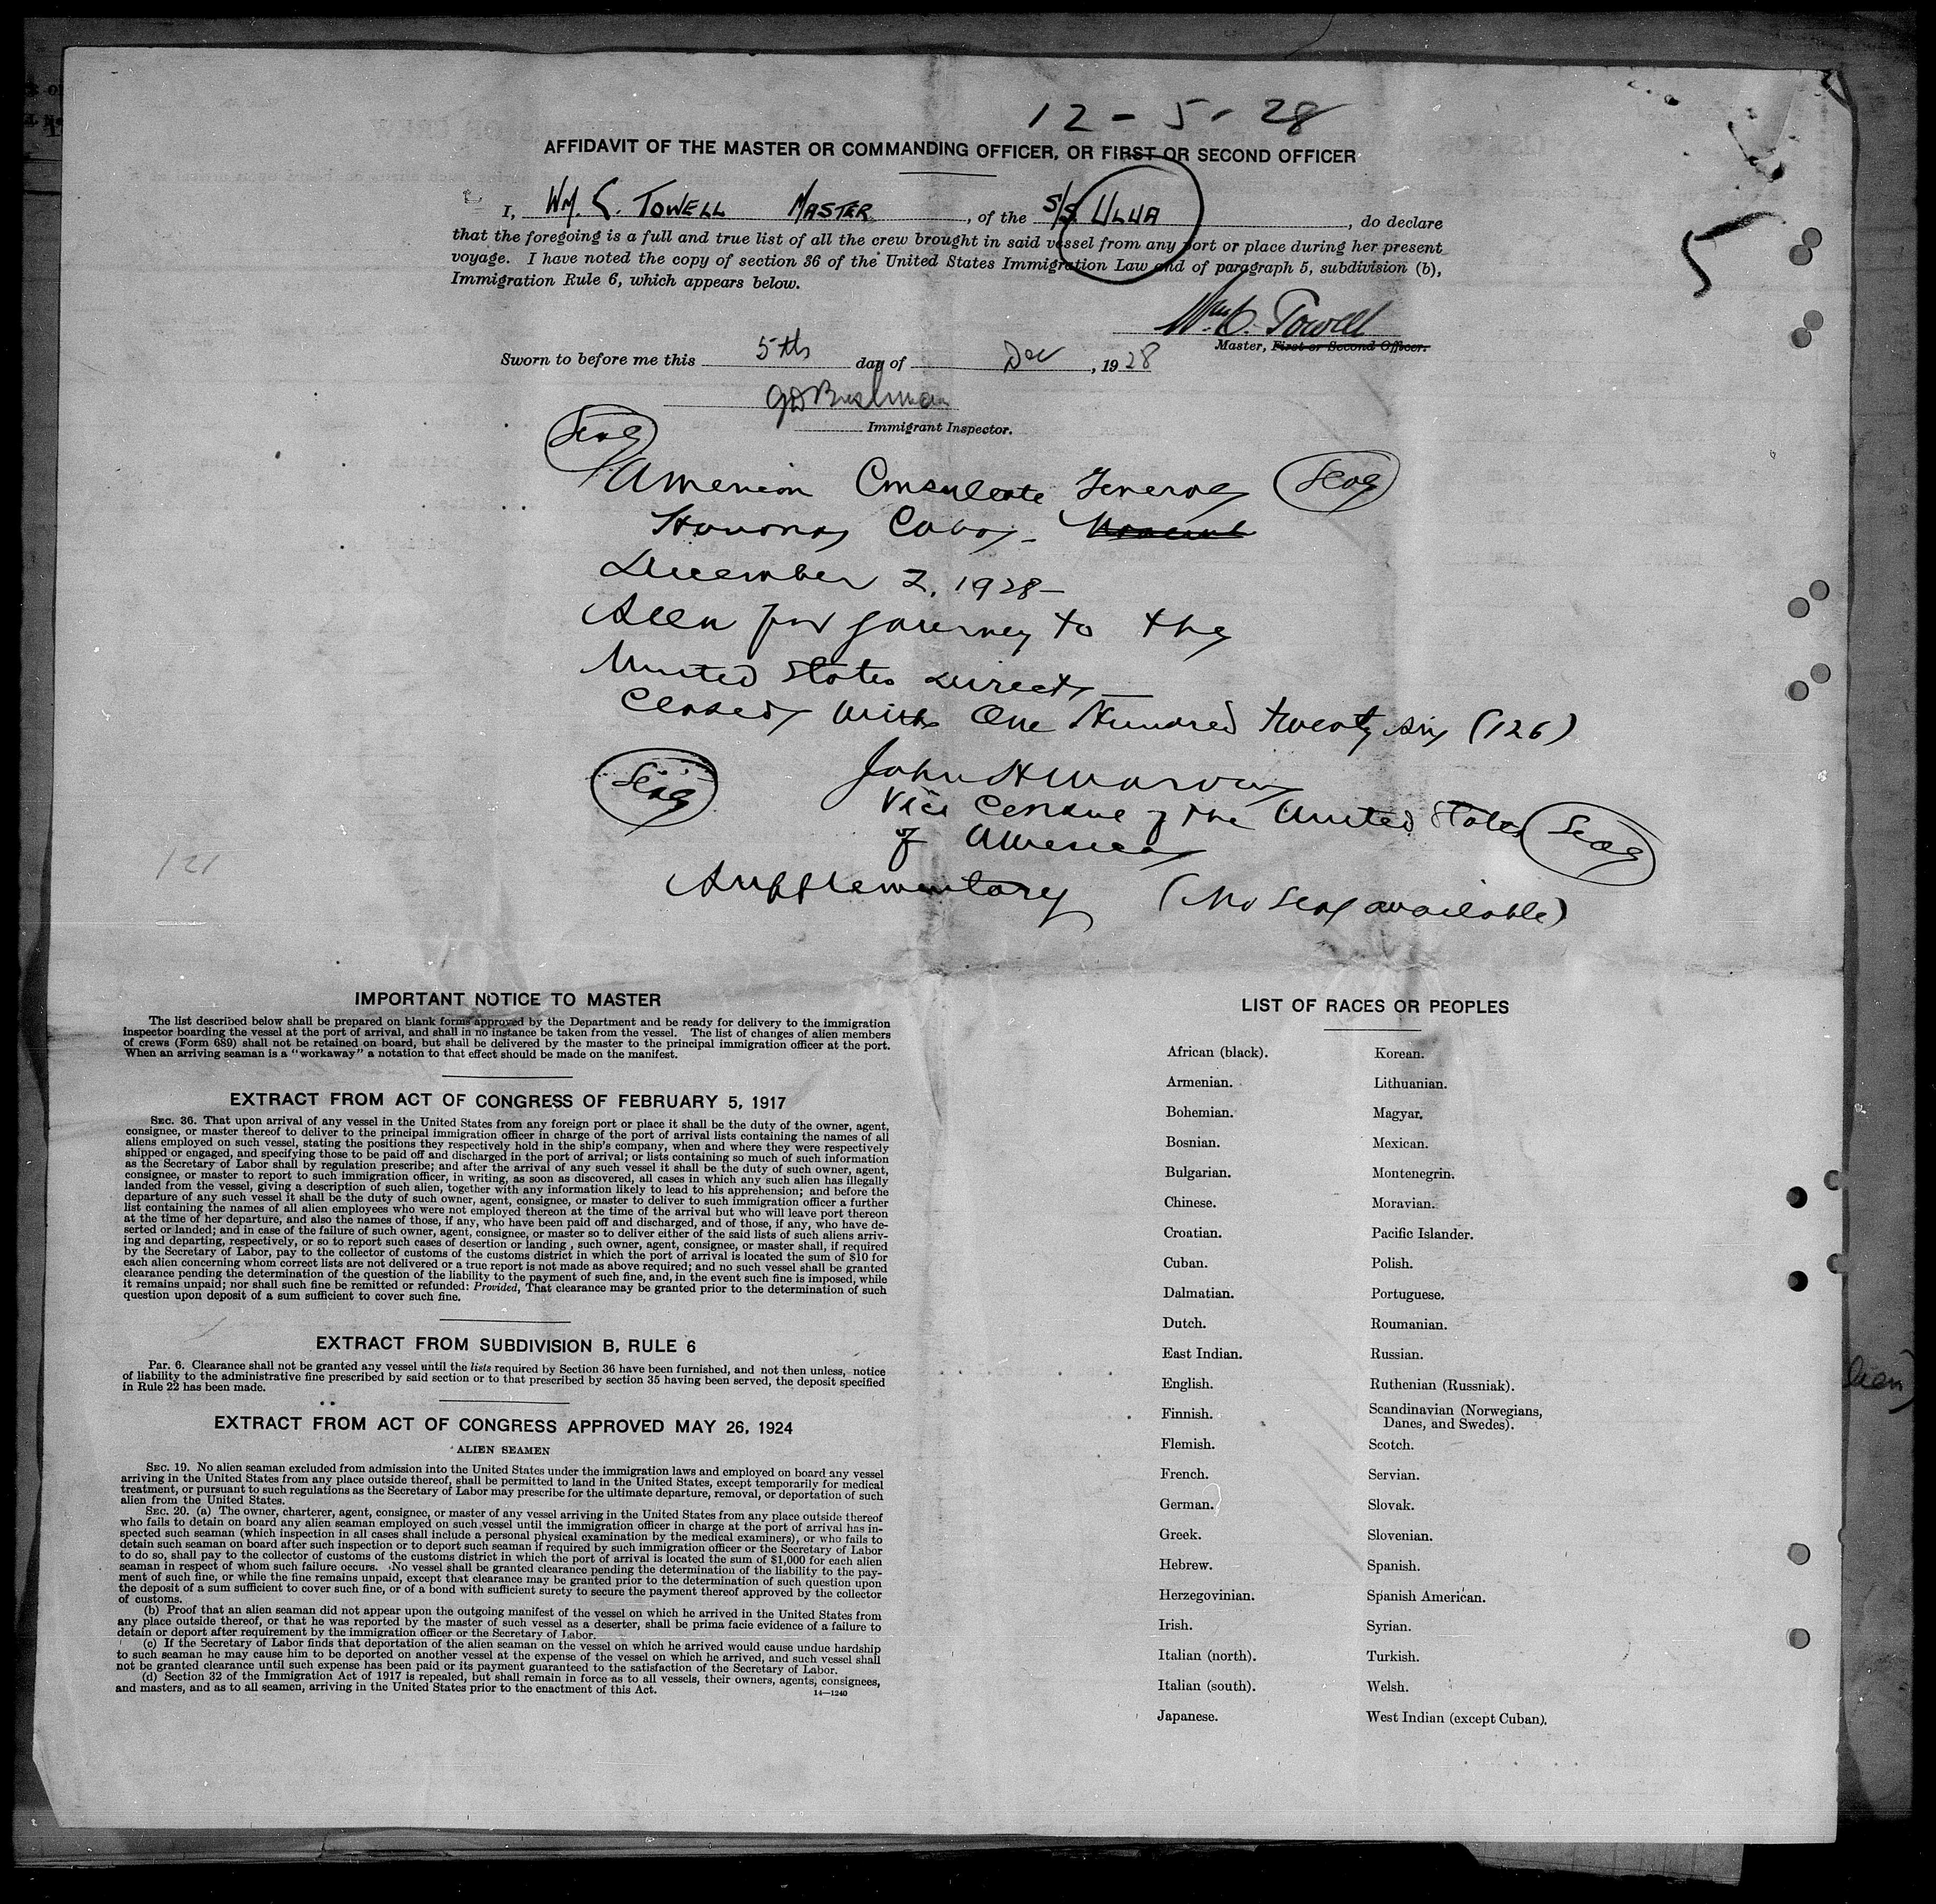 12-5-28
AFFIDAVIT OF THE MASTER OR COMMANDING OFFICER, OR FIRST OR SECOND OFFICER
I, WM. C. TOWELL MASTER, of the S/S ULUA, do declare
that the foregoing is a full and true list of all the crew brought in said vessel from any port or place during her present
voyage. I have noted the copy of section 36 of the United States Immigration Law and of paragraph 5, subdivision (b),
Immigration Rule 6, which appears below.
5
Wm C. Towell
Master, First or Second Officer.
Sworn to before me this 5th day of Dec, 1928
Immigrant Inspector.
Seal
American Consulate General Seal
Havana, Cuba.
December 2, 1928-
Seen for journey to the
United States direct,—
Closed with One Hundred twenty six (126)
John H
Seal
Vice Consul of the United States Seal
of America
Supplementary (No Seal available)
121
IMPORTANT NOTICE TO MASTER
The list described below shall be prepared on blank forms approved by the Department and be ready for delivery to the immigration
inspector boarding the vessel at the port of arrival, and shall in no instance be taken from the vessel. The list of changes of alien members
of crews (Form 689) shall not be retained on board, but shall be delivered by the master to the principal immigration officer at the port.
When an arriving seaman is a "workaway" a notation to that effect should be made on the manifest.
EXTRACT FROM ACT OF CONGRESS OF FEBRUARY 5, 1917
SEC. 36. That upon arrival of any vessel in the United States from any foreign port or place it shall be the duty of the owner, agent,
consignee, or master thereof to deliver to the principal immigration officer in charge of the port of arrival lists containing the names of all
aliens employed on such vessel, stating the positions they respectively hold in the ship's company, when and where they were respectively
shipped or engaged, and specifying those to be paid off and discharged in the port of arrival; or lists containing so much of such information
as the Secretary of Labor shall by regulation prescribe; and after the arrival of any such vessel it shall be the duty of such owner, agent,
consignee, or master to report to such immigration officer, in writing, as soon as discovered, all cases in which any such alien has illegally
landed from the vessel, giving a description of such alien, together with any information likely to lead to his apprehension; and before the
departure of any such vessel it shall be the duty of such owner, agent, consignee, or master to deliver to such immigration officer a further
list containing the names of all alien employees who were not employed thereon at the time of the arrival but who will leave port thereon
at the time of her departure, and also the names of those, if any, who have been paid off and discharged, and of those, if any, who have de-
serted or landed; and in case of the failure of such owner, agent, consignee, or master so to deliver either of the said lists of such aliens arriv-
ing and departing, respectively, or so to report such cases of desertion or landing, such owner, agent, consignee, or master shall, if required
by the Secretary of Labor, pay to the collector of customs of the customs district in which the port of arrival is located the sum of $10 for
each alien concerning whom correct lists are not delivered or a true report is not made as above required; and no such vessel shall be granted
clearance pending the determination of the question of the liability to the payment of such fine, and, in the event such fine is imposed, while
it remains unpaid; nor shall such fine be remitted or refunded: Provided, That clearance may be granted prior to the determination of such
question upon deposit of a sum sufficient to cover such fine.
EXTRACT FROM SUBDIVISION B, RULE 6
Par. 6. Clearance shall not be granted any vessel until the lists required by Section 36 have been furnished, and not then unless, notice
of liability to the administrative fine prescribed by said section or to that prescribed by section 35 having been served, the deposit specified
in Rule 22 has been made.
EXTRACT FROM ACT OF CONGRESS APPROVED MAY 26, 1924
ALIEN SEAMEN
SEC. 19. No alien seaman excluded from admission into the United States under the immigration laws and employed on board any vessel
arriving in the United States from any place outside thereof, shall be permitted to land in the United States, except temporarily for medical
treatment, or pursuant to such regulations as the Secretary of Labor may prescribe for the ultimate departure, removal, or deportation of such
alien from the United States.
SEC. 20. (a) The owner, charterer, agent, consignee, or master of any vessel arriving in the United States from any place outside thereof
who fails to detain on board any alien seaman employed on such vessel until the immigration officer in charge at the port of arrival has in-
spected such seaman (which inspection in all cases shall include a personal physical examination by the medical examiners), or who fails to
detain such seaman on board after such inspection or to deport such seaman if required by such immigration officer or the Secretary of Labor
to do so, shall pay to the collector of customs of the customs district in which the port of arrival is located the sum of $1,000 for each alien
seaman in respect of whom such failure occurs. No vessel shall be granted clearance pending the determination of the liability to the pay-
ment of such fine, or while the fine remains unpaid, except that clearance may be granted prior to the determination of such question upon
the deposit of a sum sufficient to cover such fine, or of a bond with sufficient surety to secure the payment thereof approved by the collector
of customs.
(b) Proof that an alien seaman did not appear upon the outgoing manifest of the vessel on which he arrived in the United States from
any place outside thereof, or that he was reported by the master of such vessel as a deserter, shall be prima facie evidence of a failure to
detain or deport after requirement by the immigration officer or the Secretary of Labor.
(c) If the Secretary of Labor finds that deportation of the alien seaman on the vessel on which he arrived would cause undue hardship
to such seaman he may cause him to be deported on another vessel at the expense of the vessel on which he arrived, and such vessel shall
not be granted clearance until such expense has been paid or its payment guaranteed to the satisfaction of the Secretary of Labor.
(d) Section 32 of the Immigration Act of 1917 is repealed, but shall remain in force as to all vessels, their owners, agents, consignees,
and masters, and as to all seamen, arriving in the United States prior to the enactment of this Act.
14—1240
LIST OF RACES OR PEOPLES
African (black). Korean.
Armenian. Lithuanian.
Bohemian. Magyar.
Bosnian. Mexican.
Bulgarian. Montenegrin.
Chinese. Moravian.
Croatian. Pacific Islander.
Cuban. Polish.
Dalmatian. Portuguese.
Dutch. Roumanian.
East Indian. Russian.
English. Ruthenian (Russniak).
Finnish. Scandinavian (Norwegians,
Danes, and Swedes).
Flemish. Scotch.
French. Servian.
German. Slovak.
Greek. Slovenian.
Hebrew. Spanish.
Herzegovinian. Spanish American.
Irish. Syrian.
Italian (north). Turkish.
Italian (south). Welsh.
Japanese. West Indian (except Cuban).